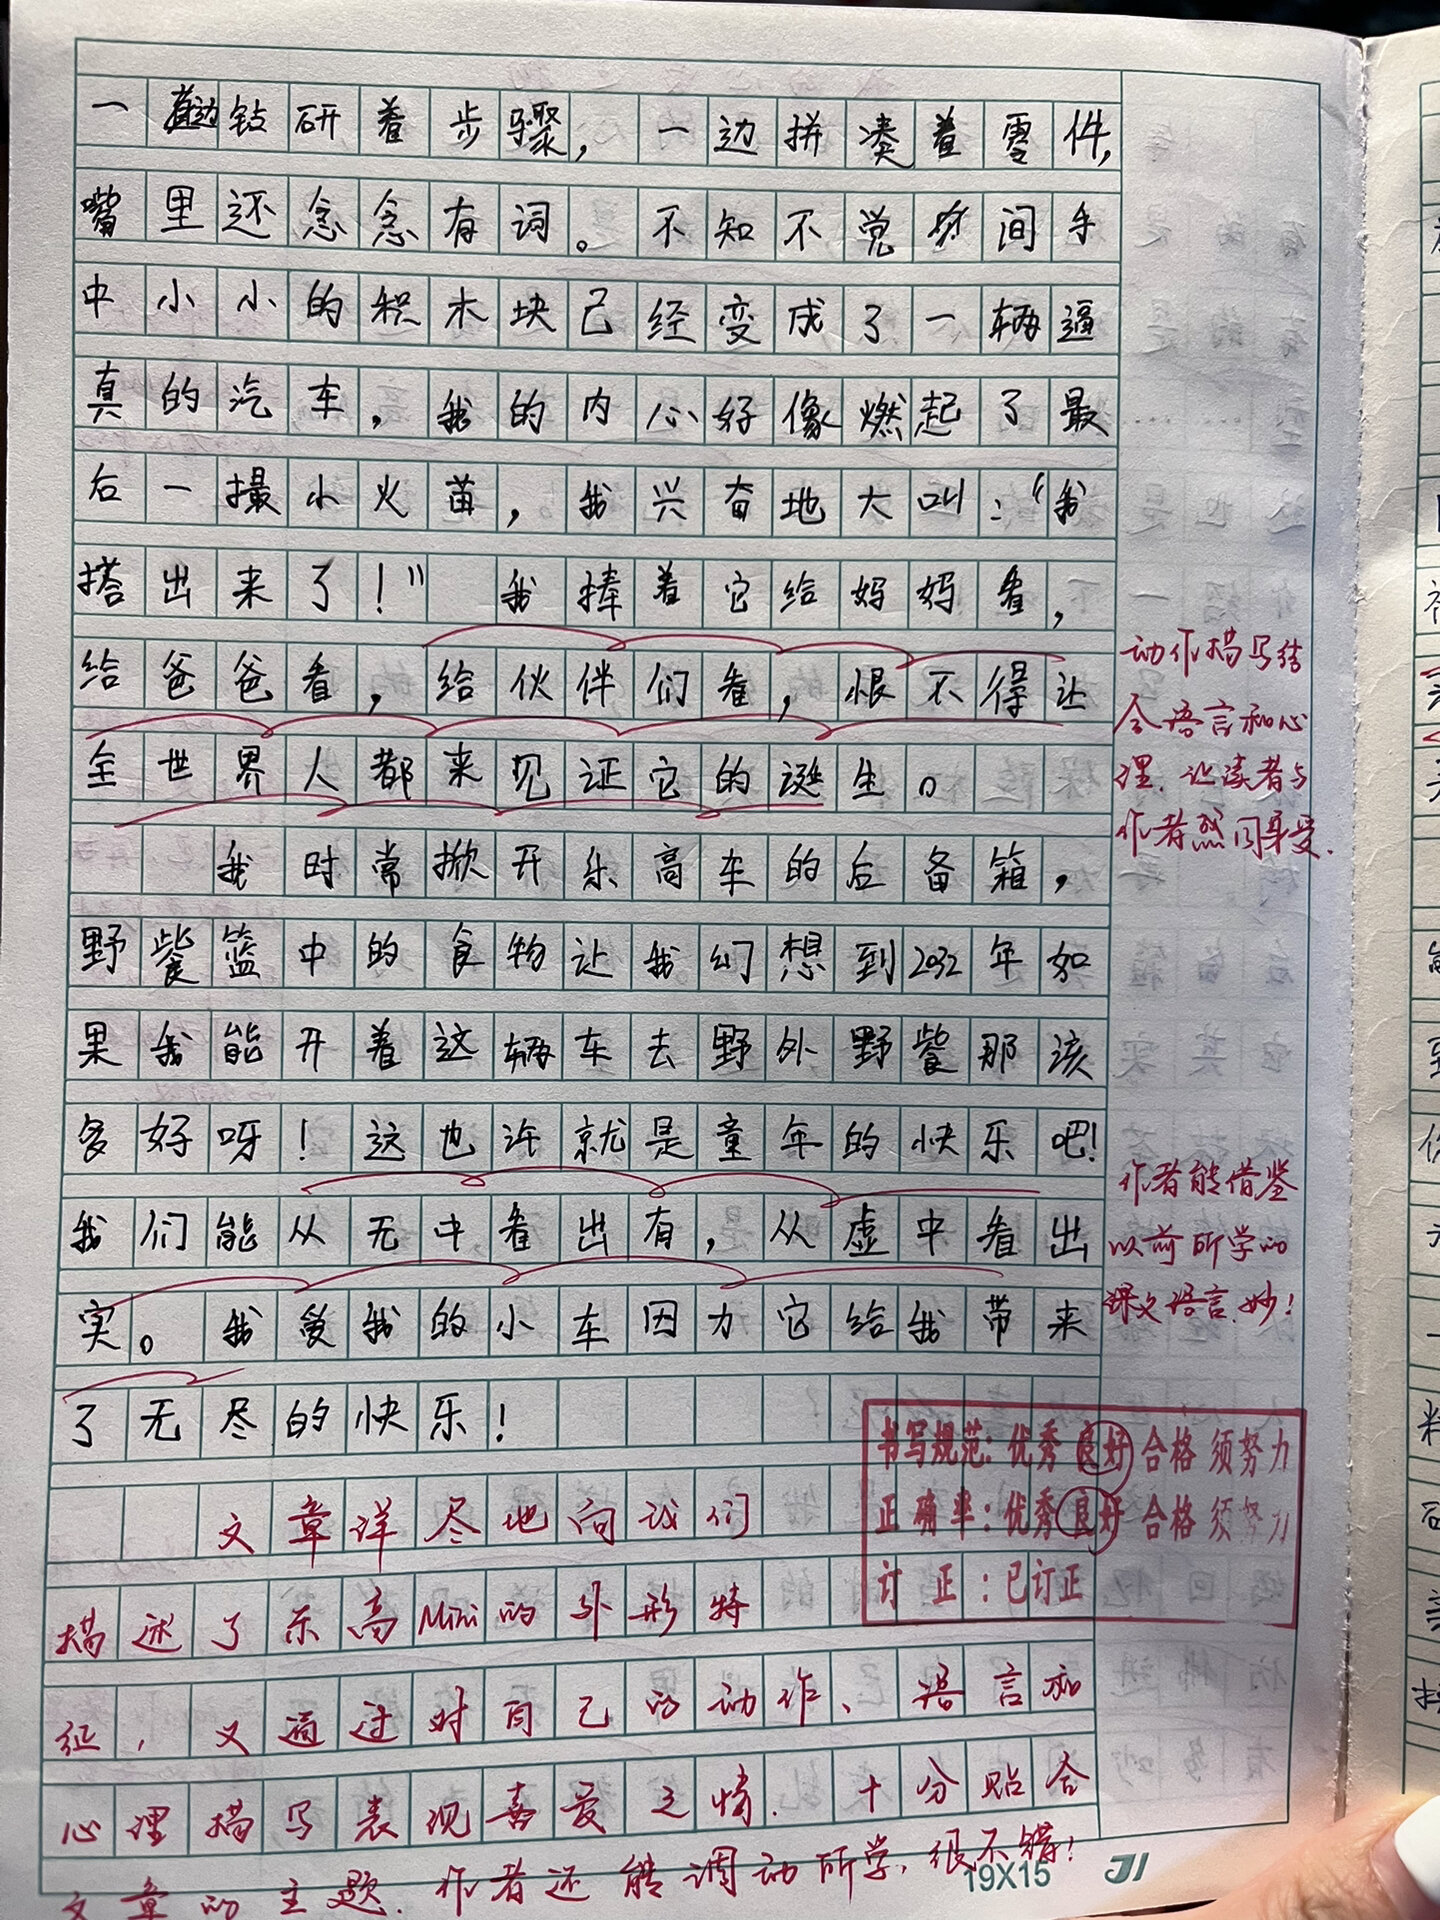 一边钻研着步骤，一边拼凑着零件，
嘴里还念念有词。不知不觉间手
中小小的积木块已经变成了一辆逼
真的汽车，我的内心好像燃起了最
后一撮小火苗，我兴奋地大叫：“我
搭出来了！”我捧着它给妈妈看，
给爸爸看，给伙伴们看，恨不得让
全世界人都来见证它的诞生。
动作描写结
合语言和心
理，让读者与
作者感同身受.
我时常掀开乐高车的后备箱，
野餐篮中的食物让我幻想到2032年如
果我能开着这辆车去野外野餐那该
多好呀！这也许就是童年的快乐吧！
我们能从无中看出有，从虚中看出
实。我爱我的小车因为它给我带来
了无尽的快乐！
作者能借鉴
以前所学的
课文语言.妙！
书写规范：优秀 良好 合格 须努力
正确率：优秀 良好 合格 须努力
订正：已订正
文章详尽地向我们
描述了乐高Mini的外形特
征，又通过对自己的动作、语言和
心理描写表现喜爱之情.十分贴合
文章的主题.作者还能调动所学，很不错！
19X15 JI